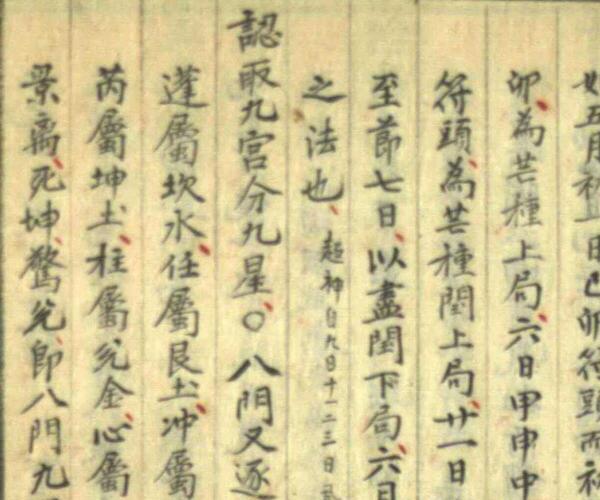 如五月初一日己卯符頭而初
卯、為芒種上局、六日甲申中
符頭、為芒種閏上局、廿一日
至節七日、以盡閏下局、六日
之法也、超神自九日十一二三日
認取九宮分九星。○八門又逐
蓬屬坎水、任屬艮土、冲屬
芮屬坤土、柱屬兌金、心屬
景离、死坤、驚兌、即八門九